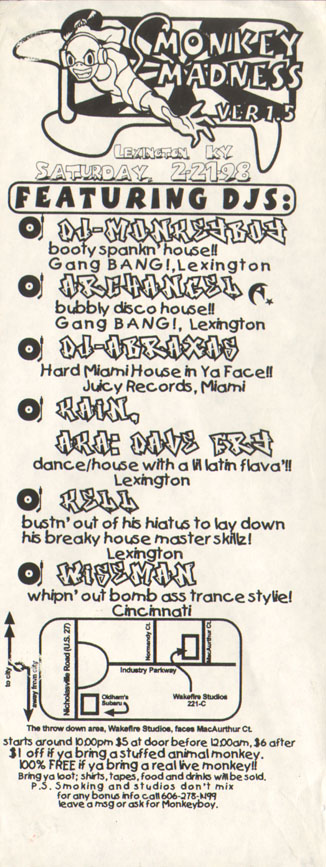 MONKEY
MADNESS
VER 1.5
LEXINGTON KY
SATURDAY, 2-21-98
FEATURING DJS:
DJ-MONKEYBOY
booty spankn' house!!
Gang BANG!, Lexington
ARCHANGEL
bubbly disco house!!
Gang BANG!, Lexington
DJ-ABRAXAS
Hard Miami House in Ya Face!!
Juicy Records, Miami
KAIN,
AKA: DAVE FRY
dance/house with a lil latin flava'!!
Lexington
KELL
bustn' out of his hiatus to lay down
his breaky house master skillz!
Lexington
WISEMAN
whipn' out bomb ass trance stylie!
Cincinnati
to city
away from city
Nicholasville Road (U.S. 27)
Normandy Ct.
MacAurthur Ct.
Industry Parkway
Oldham's
Subaru
Wakefire Studios
221-C
The throw down area, Wakefire Studios, faces MacAurthur Ct.
starts around 10:00pm $5 at door before 12:00am, $6 after
$1 off if ya bring a stuffed animal monkey.
100% FREE if ya bring a real live monkey!!
Bring ya loot; shirts, tapes, food and drinks will be sold.
P.S. Smoking and studios don't mix
for any bonus info call 606-278-1499
leave a msg or ask for Monkeyboy.